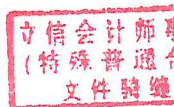 立信会计师
(特殊普通合
文件骑缝